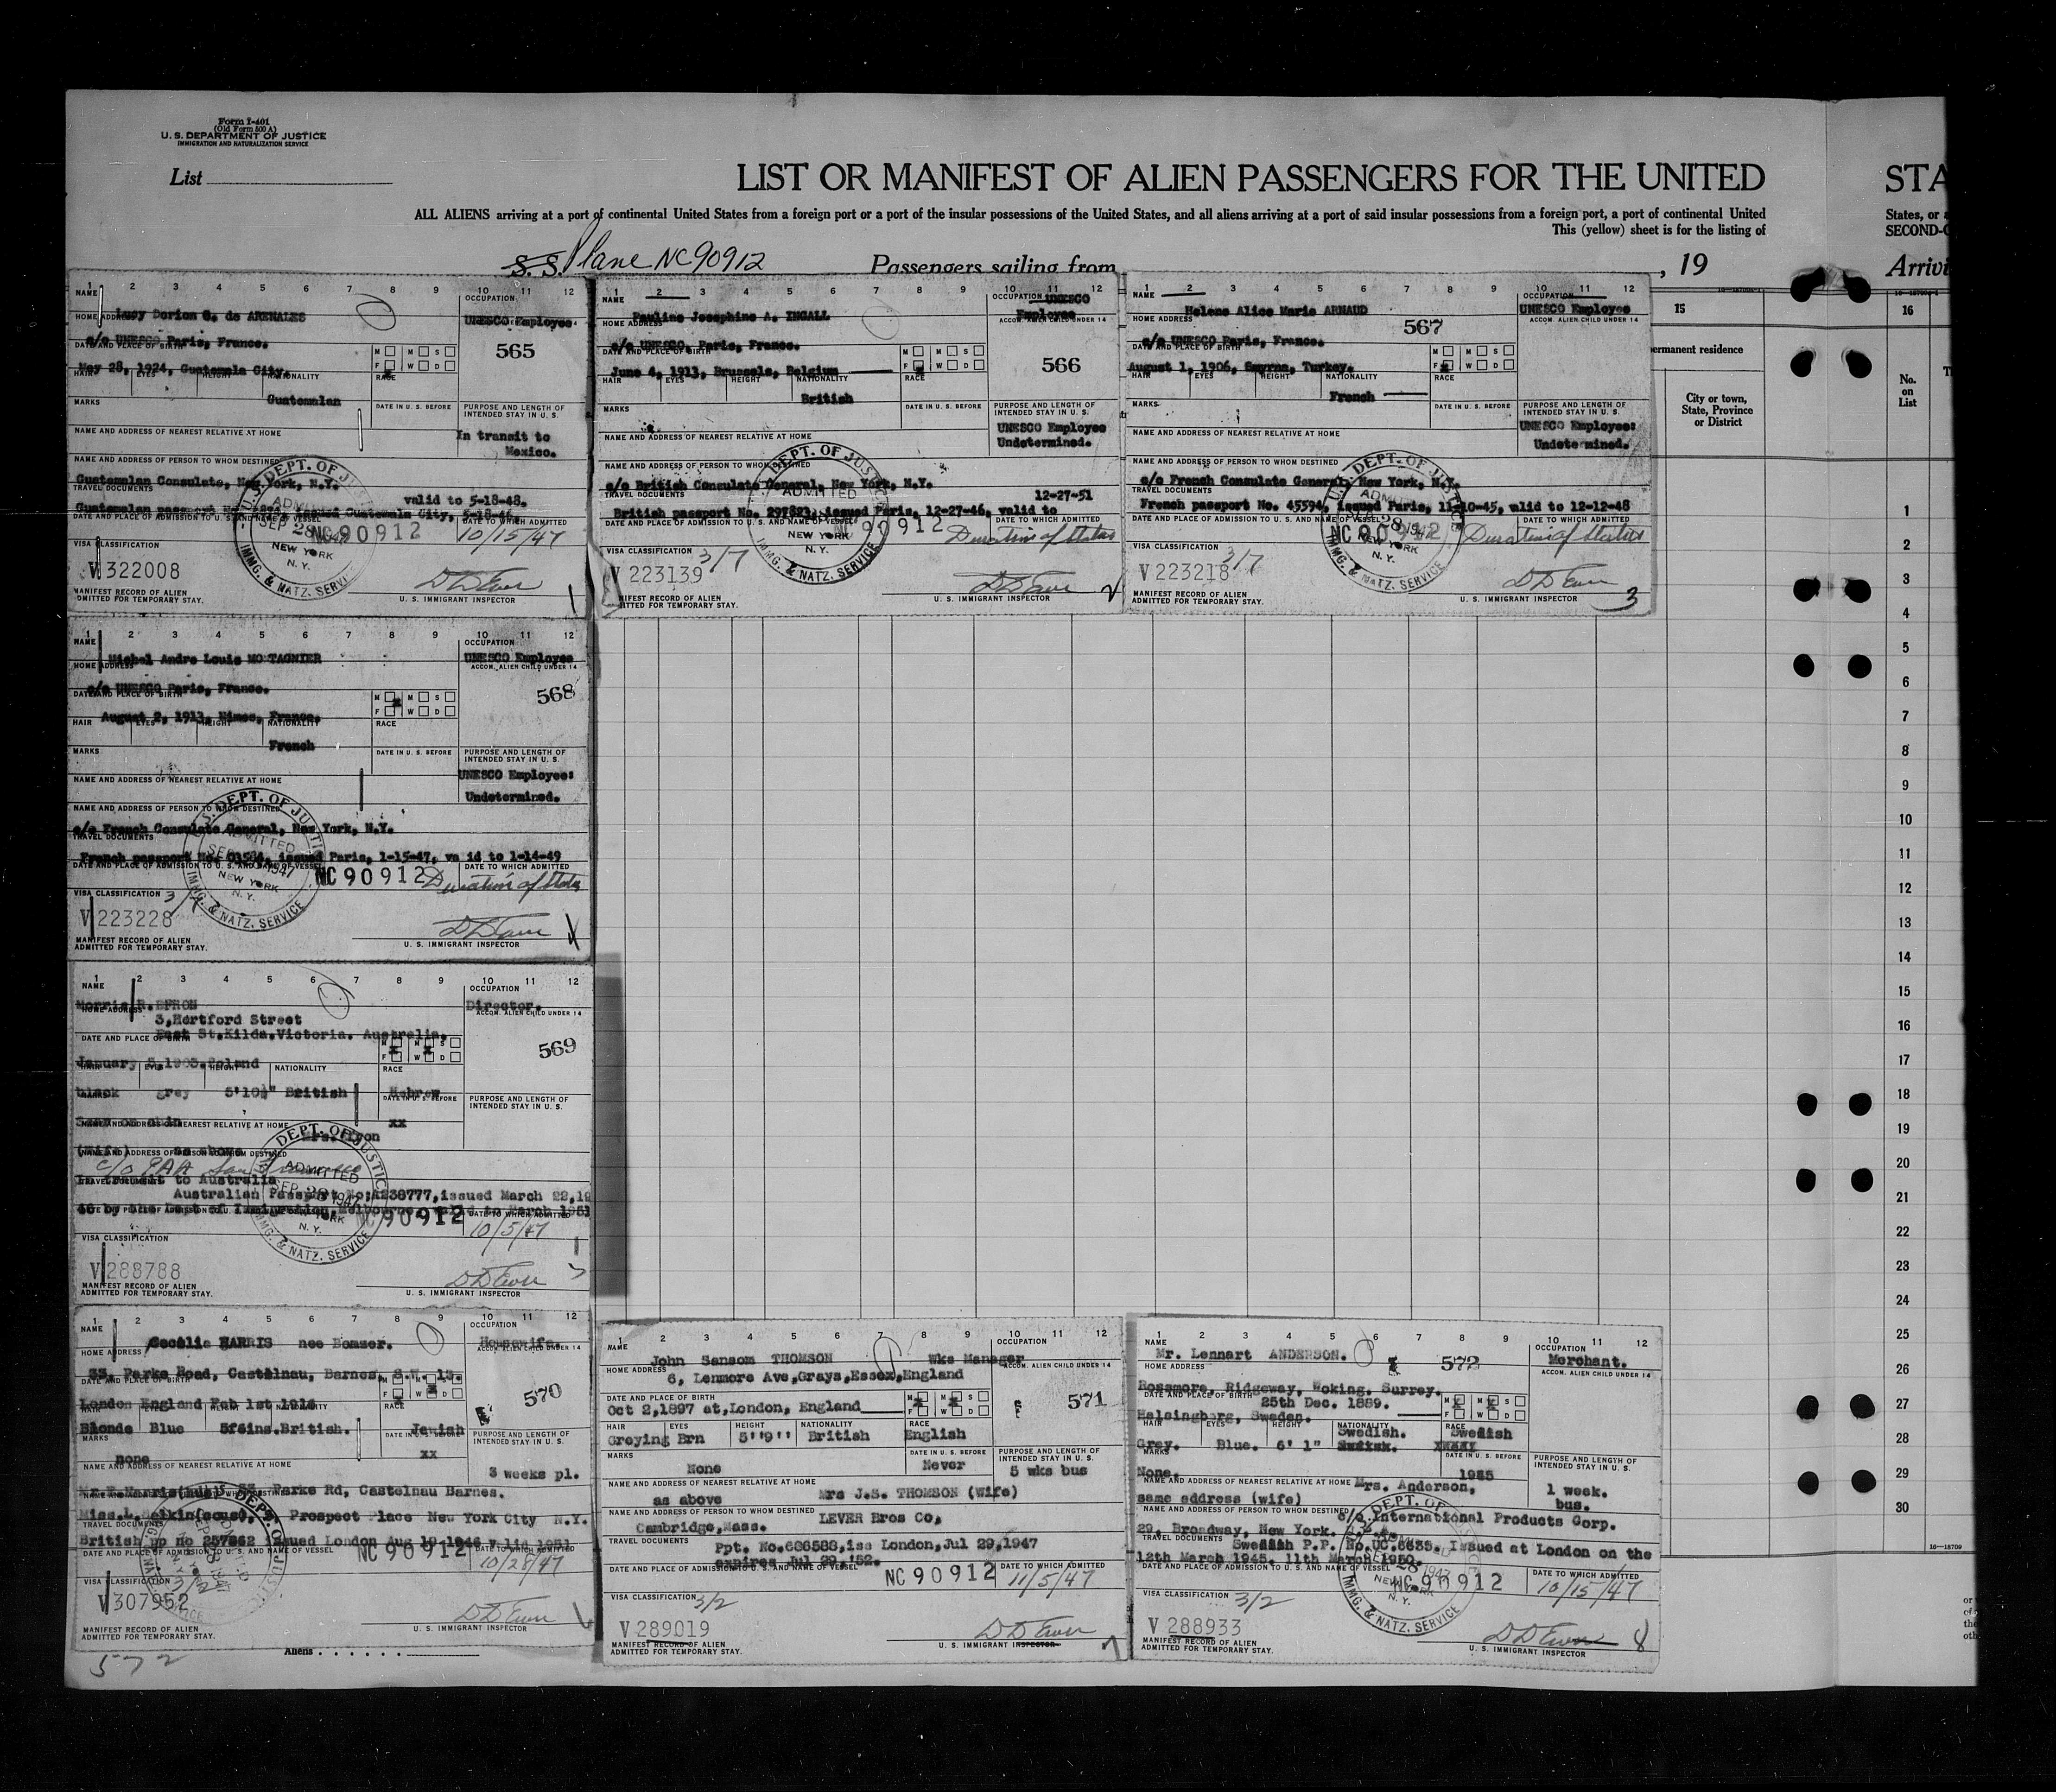 Form I-401
(Old Form 500 A)
U. S. DEPARTMENT OF JUSTICE
IMMIGRATION AND NATURALIZATION SERVICE
List
LIST OR MANIFEST OF ALIEN PASSENGERS FOR THE UNITED
STA
ALL ALIENS arriving at a port of continental United States from a foreign port or a port of the insular possessions of the United States, and all aliens arriving at a port of said insular possessions from a foreign port, a port of continental United
States, or a
This (yellow) sheet is for the listing of
SECOND-C
S. S. Plane NC90912
Passengers sailing from
, 19
Arrivi
1 2 3 4 5 6 7 8 9 10 11 12
NAME
OCCUPATION
Lucy Dorion G. de ARENALES
UNESCO Employee
HOME ADDRESS
c/o UNESCO Paris, France.
565
DATE AND PLACE OF BIRTH
M M S
F W D
May 28, 1924, Guatemala City.
HAIR EYES HEIGHT NATIONALITY RACE
Guatemalan
MARKS
DATE IN U. S. BEFORE
PURPOSE AND LENGTH OF INTENDED STAY IN U. S.
NAME AND ADDRESS OF NEAREST RELATIVE AT HOME
In transit to
Mexico.
NAME AND ADDRESS OF PERSON TO WHOM DESTINED
Guatemalan Consulate, New York, N.Y.
TRAVEL DOCUMENTS
valid to 5-18-48.
Guatemalan passport issued Guatemala City, 5-18-46
DATE AND PLACE OF ADMISSION TO U. S. AND NAME OF VESSEL
DATE TO WHICH ADMITTED
NC90912
10/15/47
U.S. DEPT. OF JUSTICE
ADMITTED
SEP 28 1947
NEW YORK
N. Y.
IMMG. & NATZ. SERVICE
VISA CLASSIFICATION
V 322008
MANIFEST RECORD OF ALIEN
ADMITTED FOR TEMPORARY STAY.
U. S. IMMIGRANT INSPECTOR
1
1 2 3 4 5 6 7 8 9 10 11 12
NAME
OCCUPATION
UNESCO
Pauline Josephine A. INGALL
Employee
HOME ADDRESS
ACCOM. ALIEN CHILD UNDER 14
c/o UNESCO, Paris, France.
DATE AND PLACE OF BIRTH
M M S
F W D
566
June 4, 1913, Brussels, Belgium
HAIR EYES HEIGHT NATIONALITY RACE
British
MARKS
DATE IN U. S. BEFORE
PURPOSE AND LENGTH OF INTENDED STAY IN U. S.
UNESCO Employee
Undetermined.
NAME AND ADDRESS OF NEAREST RELATIVE AT HOME
NAME AND ADDRESS OF PERSON TO WHOM DESTINED
c/o British Consulate General, New York, N.Y.
TRAVEL DOCUMENTS
12-27-51
British passport No. issued Paris, 12-27-46, valid to
DATE AND PLACE OF ADMISSION TO U. S. AND NAME OF VESSEL
DATE TO WHICH ADMITTED
90912
Duration of Status
DEPT. OF JUSTICE
ADMITTED
NEW YORK
N. Y.
IMMG. & NATZ. SERVICE
VISA CLASSIFICATION
3/7
V 223139
MANIFEST RECORD OF ALIEN
ADMITTED FOR TEMPORARY STAY.
U. S. IMMIGRANT INSPECTOR
1 2 3 4 5 6 7 8 9 10 11 12
NAME
OCCUPATION
Helene Alice Marie ARNAUD
UNESCO Employee
HOME ADDRESS
567
ACCOM. ALIEN CHILD UNDER 14
c/o UNESCO Paris, France.
DATE AND PLACE OF BIRTH
M M S
F W D
August 1, 1906, Smyrna, Turkey.
HAIR EYES HEIGHT NATIONALITY RACE
French
MARKS
DATE IN U. S. BEFORE
PURPOSE AND LENGTH OF INTENDED STAY IN U. S.
UNESCO Employee:
Undetermined.
NAME AND ADDRESS OF NEAREST RELATIVE AT HOME
NAME AND ADDRESS OF PERSON TO WHOM DESTINED
c/o French Consulate General, New York, N.Y.
TRAVEL DOCUMENTS
French passport No. 45594, issued Paris, 11-10-45, valid to 12-12-48
DATE AND PLACE OF ADMISSION TO U. S. AND NAME OF VESSEL
DATE TO WHICH ADMITTED
NC 90912
Duration of Status
VISA CLASSIFICATION
3/7
V 223218
MANIFEST RECORD OF ALIEN
ADMITTED FOR TEMPORARY STAY.
U. S. IMMIGRANT INSPECTOR
3
15
16
ermanent residence
City or town,
State, Province
or District
No.
on
List
1 2 3 4 5 6 7 8 9 10 11 12
NAME
OCCUPATION
Michel Andre Louis MO TAGNIER
UNESCO Employee
HOME ADDRESS
ACCOM. ALIEN CHILD UNDER 14
c/o UNESCO Paris, France.
568
DATE AND PLACE OF BIRTH
M M S
F W D
August 2, 1913, Nimes, France.
HAIR EYES HEIGHT NATIONALITY RACE
French
MARKS
DATE IN U. S. BEFORE
PURPOSE AND LENGTH OF INTENDED STAY IN U. S.
NAME AND ADDRESS OF NEAREST RELATIVE AT HOME
UNESCO Employee:
Undetermined.
NAME AND ADDRESS OF PERSON TO WHOM DESTINED
c/o French Consulate General, New York, N.Y.
TRAVEL DOCUMENTS
French passport No. issued Paris, 1-15-47, va id to 1-14-49
DATE AND PLACE OF ADMISSION TO U. S. AND NAME OF VESSEL
DATE TO WHICH ADMITTED
NC90912
Duration of Status
VISA CLASSIFICATION
V 223228
MANIFEST RECORD OF ALIEN
ADMITTED FOR TEMPORARY STAY.
U. S. IMMIGRANT INSPECTOR
1 2 3 4 5 6 7 8 9 10 11 12
NAME
OCCUPATION
Morris R. EFRON
Director.
HOME ADDRESS
ACCOM. ALIEN CHILD UNDER 14
3,Hertford Street
East St.Kilda.Victoria. Australia.
DATE AND PLACE OF BIRTH
M M S
F W D
569
January 5.1903.Poland
NATIONALITY RACE
black grey 5'10½" British Hebrew
DATE IN U. S. BEFORE
PURPOSE AND LENGTH OF INTENDED STAY IN U. S.
xx
NAME AND ADDRESS OF NEAREST RELATIVE AT HOME
NAME AND ADDRESS OF PERSON TO WHOM DESTINED
c/o PAA San Francisco
In transit to Australia
Australian Passport No:A238777,issued March 22,19
DATE TO WHICH ADMITTED
NC90912
10/5/47
VISA CLASSIFICATION
V 288788
MANIFEST RECORD OF ALIEN
ADMITTED FOR TEMPORARY STAY.
U. S. IMMIGRANT INSPECTOR
1 2 3 4 5 6 7 8 9 10 11 12
NAME
OCCUPATION
Cecélia HARRIS nee Bomzer.
Housewife.
HOME ADDRESS
ACCOM. ALIEN CHILD UNDER 14
33, Parke Road, Castelnau, Barnes, S.W. 13.
DATE AND PLACE OF BIRTH
570
London England Feb 1st
Blonde Blue 5ft6ins.British. Jewish
MARKS
none
xx
PURPOSE AND LENGTH OF INTENDED STAY IN U. S.
NAME AND ADDRESS OF NEAREST RELATIVE AT HOME
3 weeks pl.
Parke Rd, Castelnau Barnes.
Prospect Place New York City N.Y.
TRAVEL DOCUMENTS
British pp no 257962 issued London Aug 19 1946
DATE AND PLACE OF ADMISSION TO U. S. AND NAME OF VESSEL
NC90912
10/28/47
VISA CLASSIFICATION
V 307952
MANIFEST RECORD OF ALIEN
ADMITTED FOR TEMPORARY STAY.
U. S. IMMIGRANT INSPECTOR
572
Aliens
1 2 3 4 5 6 7 8 9 10 11 12
NAME
OCCUPATION
John Sansom THOMSON
Wks Manager
HOME ADDRESS
ACCOM. ALIEN CHILD UNDER 14
6, Lenmore Ave,Grays,Essex,England
DATE AND PLACE OF BIRTH
M M S
F W D
571
Oct 2,1897 at,London, England
HAIR EYES HEIGHT NATIONALITY RACE
Greying Brn 5''9'' British English
MARKS
DATE IN U. S. BEFORE
PURPOSE AND LENGTH OF INTENDED STAY IN U. S.
None
Never
5 wks bus
NAME AND ADDRESS OF NEAREST RELATIVE AT HOME
as above Mrs J.S. THOMSON (Wife)
NAME AND ADDRESS OF PERSON TO WHOM DESTINED
LEVER Bros Co,
Cambridge,Mass.
TRAVEL DOCUMENTS
Ppt. No.686588,iss London,Jul 29,1947
expires Jul 29,'52.
DATE AND PLACE OF ADMISSION TO U. S. AND NAME OF VESSEL
DATE TO WHICH ADMITTED
NC 90912
11/5/47
VISA CLASSIFICATION
3/2
V 289019
MANIFEST RECORD OF ALIEN
ADMITTED FOR TEMPORARY STAY.
U. S. IMMIGRANT INSPECTOR
1 2 3 4 5 6 7 8 9 10 11 12
NAME
OCCUPATION
Mr. Lennart ANDERSON.
572
Merchant.
HOME ADDRESS
ACCOM. ALIEN CHILD UNDER 14
Rossmore, Ridgeway, Woking, Surrey.
DATE AND PLACE OF BIRTH
25th Dec. 1889.
M M S
F W D
Halsingborg, Sweden.
HAIR EYES HEIGHT NATIONALITY RACE
Swedish. Swedish
Grey. Blue. 6' 1"
MARKS
DATE IN U. S. BEFORE
PURPOSE AND LENGTH OF INTENDED STAY IN U. S.
None.
NAME AND ADDRESS OF NEAREST RELATIVE AT HOME
Mrs. Anderson,
same address (wife)
1 week.
bus.
NAME AND ADDRESS OF PERSON TO WHOM DESTINED
c/o International Products Corp.
29, Broadway, New York.
TRAVEL DOCUMENTS
Swedish P.P. Issued at London on the
12th March 1945. 11th March 1950.
DATE AND PLACE OF ADMISSION TO U. S. AND NAME OF VESSEL
DATE TO WHICH ADMITTED
NC90912
10/15/47
VISA CLASSIFICATION
3/2
V 288933
MANIFEST RECORD OF ALIEN
ADMITTED FOR TEMPORARY STAY.
U. S. IMMIGRANT INSPECTOR
8
1
2
3
4
5
6
7
8
9
10
11
12
13
14
15
16
17
18
19
20
21
22
23
24
25
26
27
28
29
30
16—18709